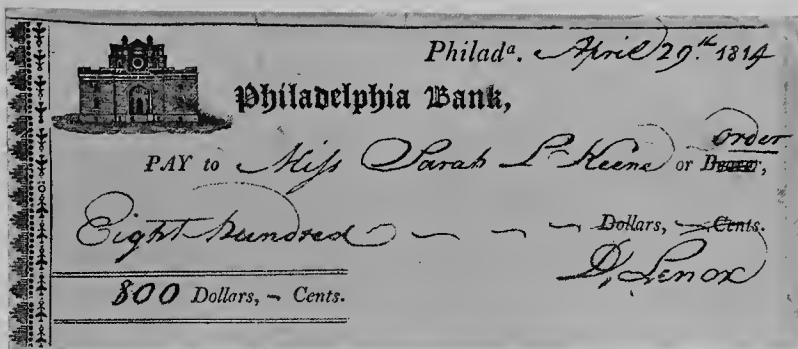 Philadᵃ. April 29.ᵗʰ 1814
Philadelphia Bank,
order
PAY to Miſs Sarah L Keene or Bearer,
Eight hundred — — — — Dollars, — Cents.
D, Lenox
800 Dollars, — Cents.